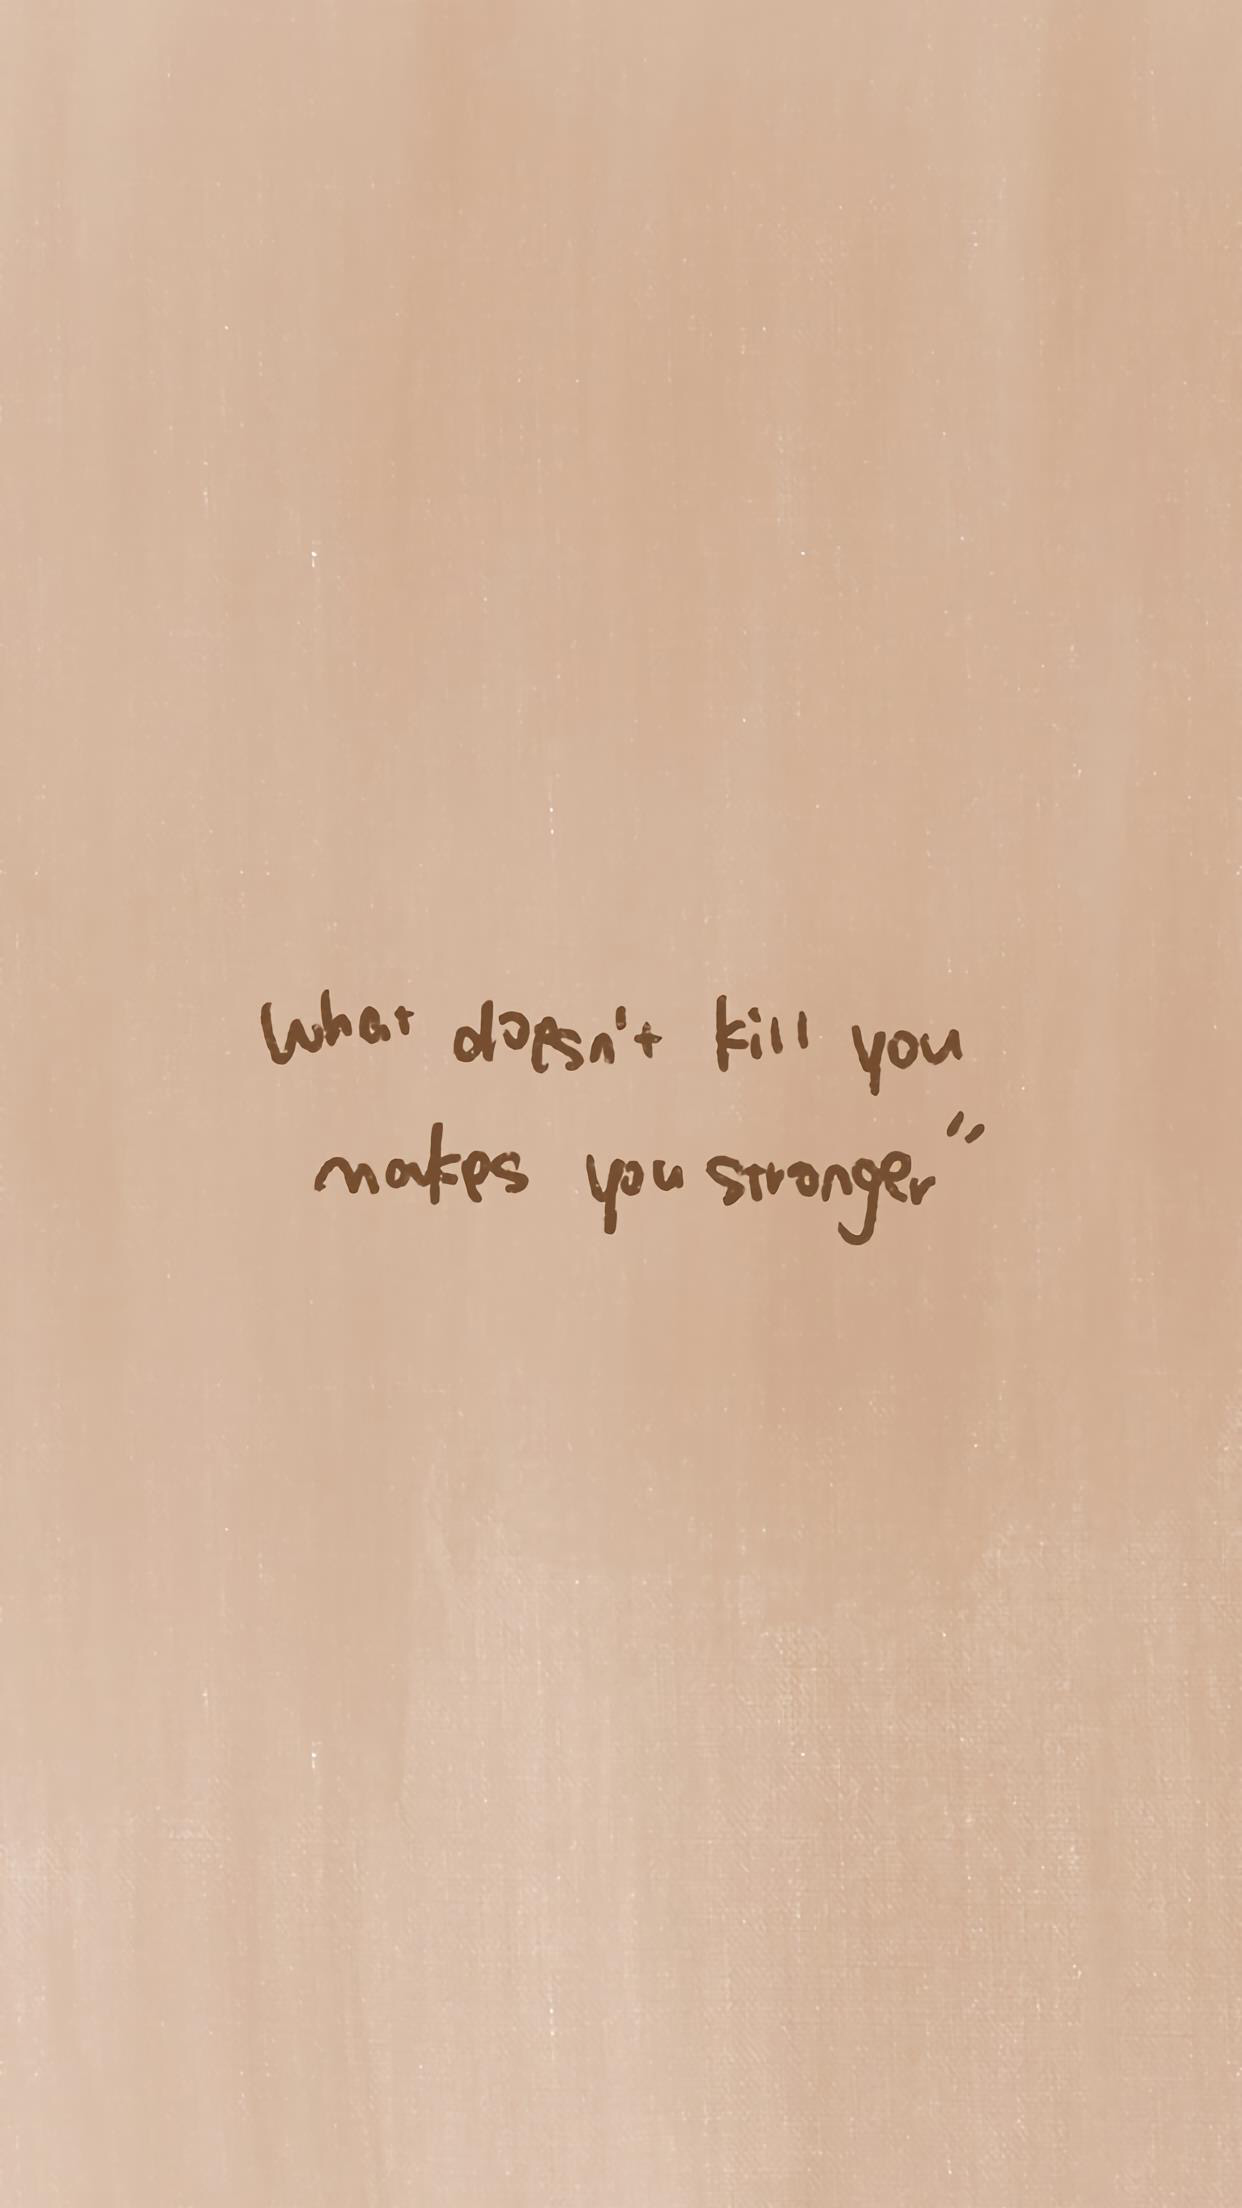 What doesn't kill you
makes you stronger"